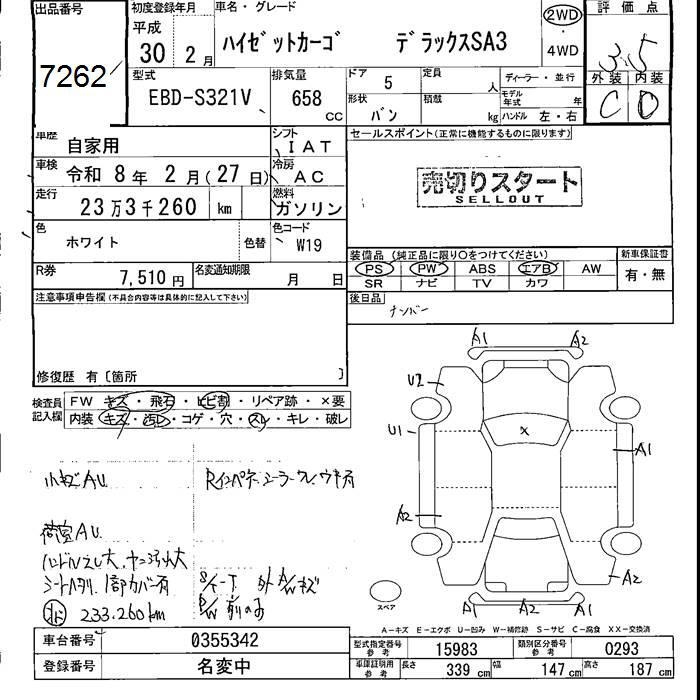 出品番号 初度登録年月 車名・グレード 2WD 評価点
平成
30年 2月 ハイゼットカーゴ デラックスSA3 4WD 3.5
7262
型式 排気量 ドア 5 定員 人 ディーラー・並行 外装 内装
EBD-S321V 658 cc 形状 バン 積載 kg モデル年式 年 C D
ハンドル 左・右
車歴 自家用 シフト IAT セールスポイント(正常に機能するものに限ります)
車検 令和 8年 2月(27日) 冷房 AC 売切りスタート
SELLOUT
走行 23万3千260 km 燃料 ガソリン
色 ホワイト 色替 色コード W19
装備品(純正品に限り○をつけてください) 新車保証書
R券 7,510円 名変通知期限 月 日 PS PW ABS エアB AW 有・無
SR ナビ TV カワ
注意事項申告欄(不具合内容等は具体的に記入して下さい) 後日品
ナンバー
修復歴 有〔箇所 〕
検査員記入欄 FW キズ・飛石・ヒビ割・リペア跡・×要
内装 キズ・汚レ・コゲ・穴・スレ・キレ・破レ
A1 A2
U2
U1 × A1
A2
A2
A1 A2 A1
スペア
小キズAU
荷室AU
シートヘタリ 1部カバー有
233.260km
A-キズ E-エクボ U-凹み W-補修跡 S-サビ C-腐食 XX-交換済
車台番号 0355342 型式指定番号 参考 15983 類別区分番号 参考 0293
登録番号 名変中 車庫証明用 参考 長さ 339cm 幅 147cm 高さ 187cm